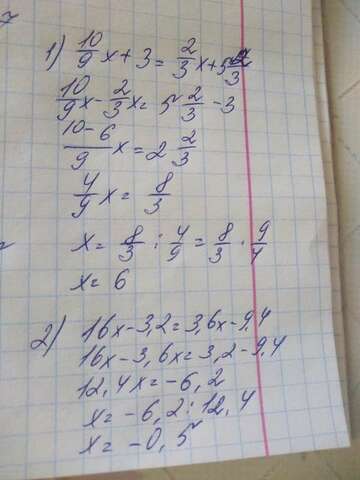 1) 10/9 x + 3 = 2/3 x + 5 2/3
10/9 x - 2/3 x = 5 2/3 - 3
10-6/9 x = 2 2/3
4/9 x = 8/3
x = 8/3 : 4/9 = 8/3 · 9/4
x = 6
2) 16x - 3,2 = 3,6x - 9,4
16x - 3,6x = 3,2 - 9,4
12,4x = -6,2
x = -6,2 : 12,4
x = -0,5